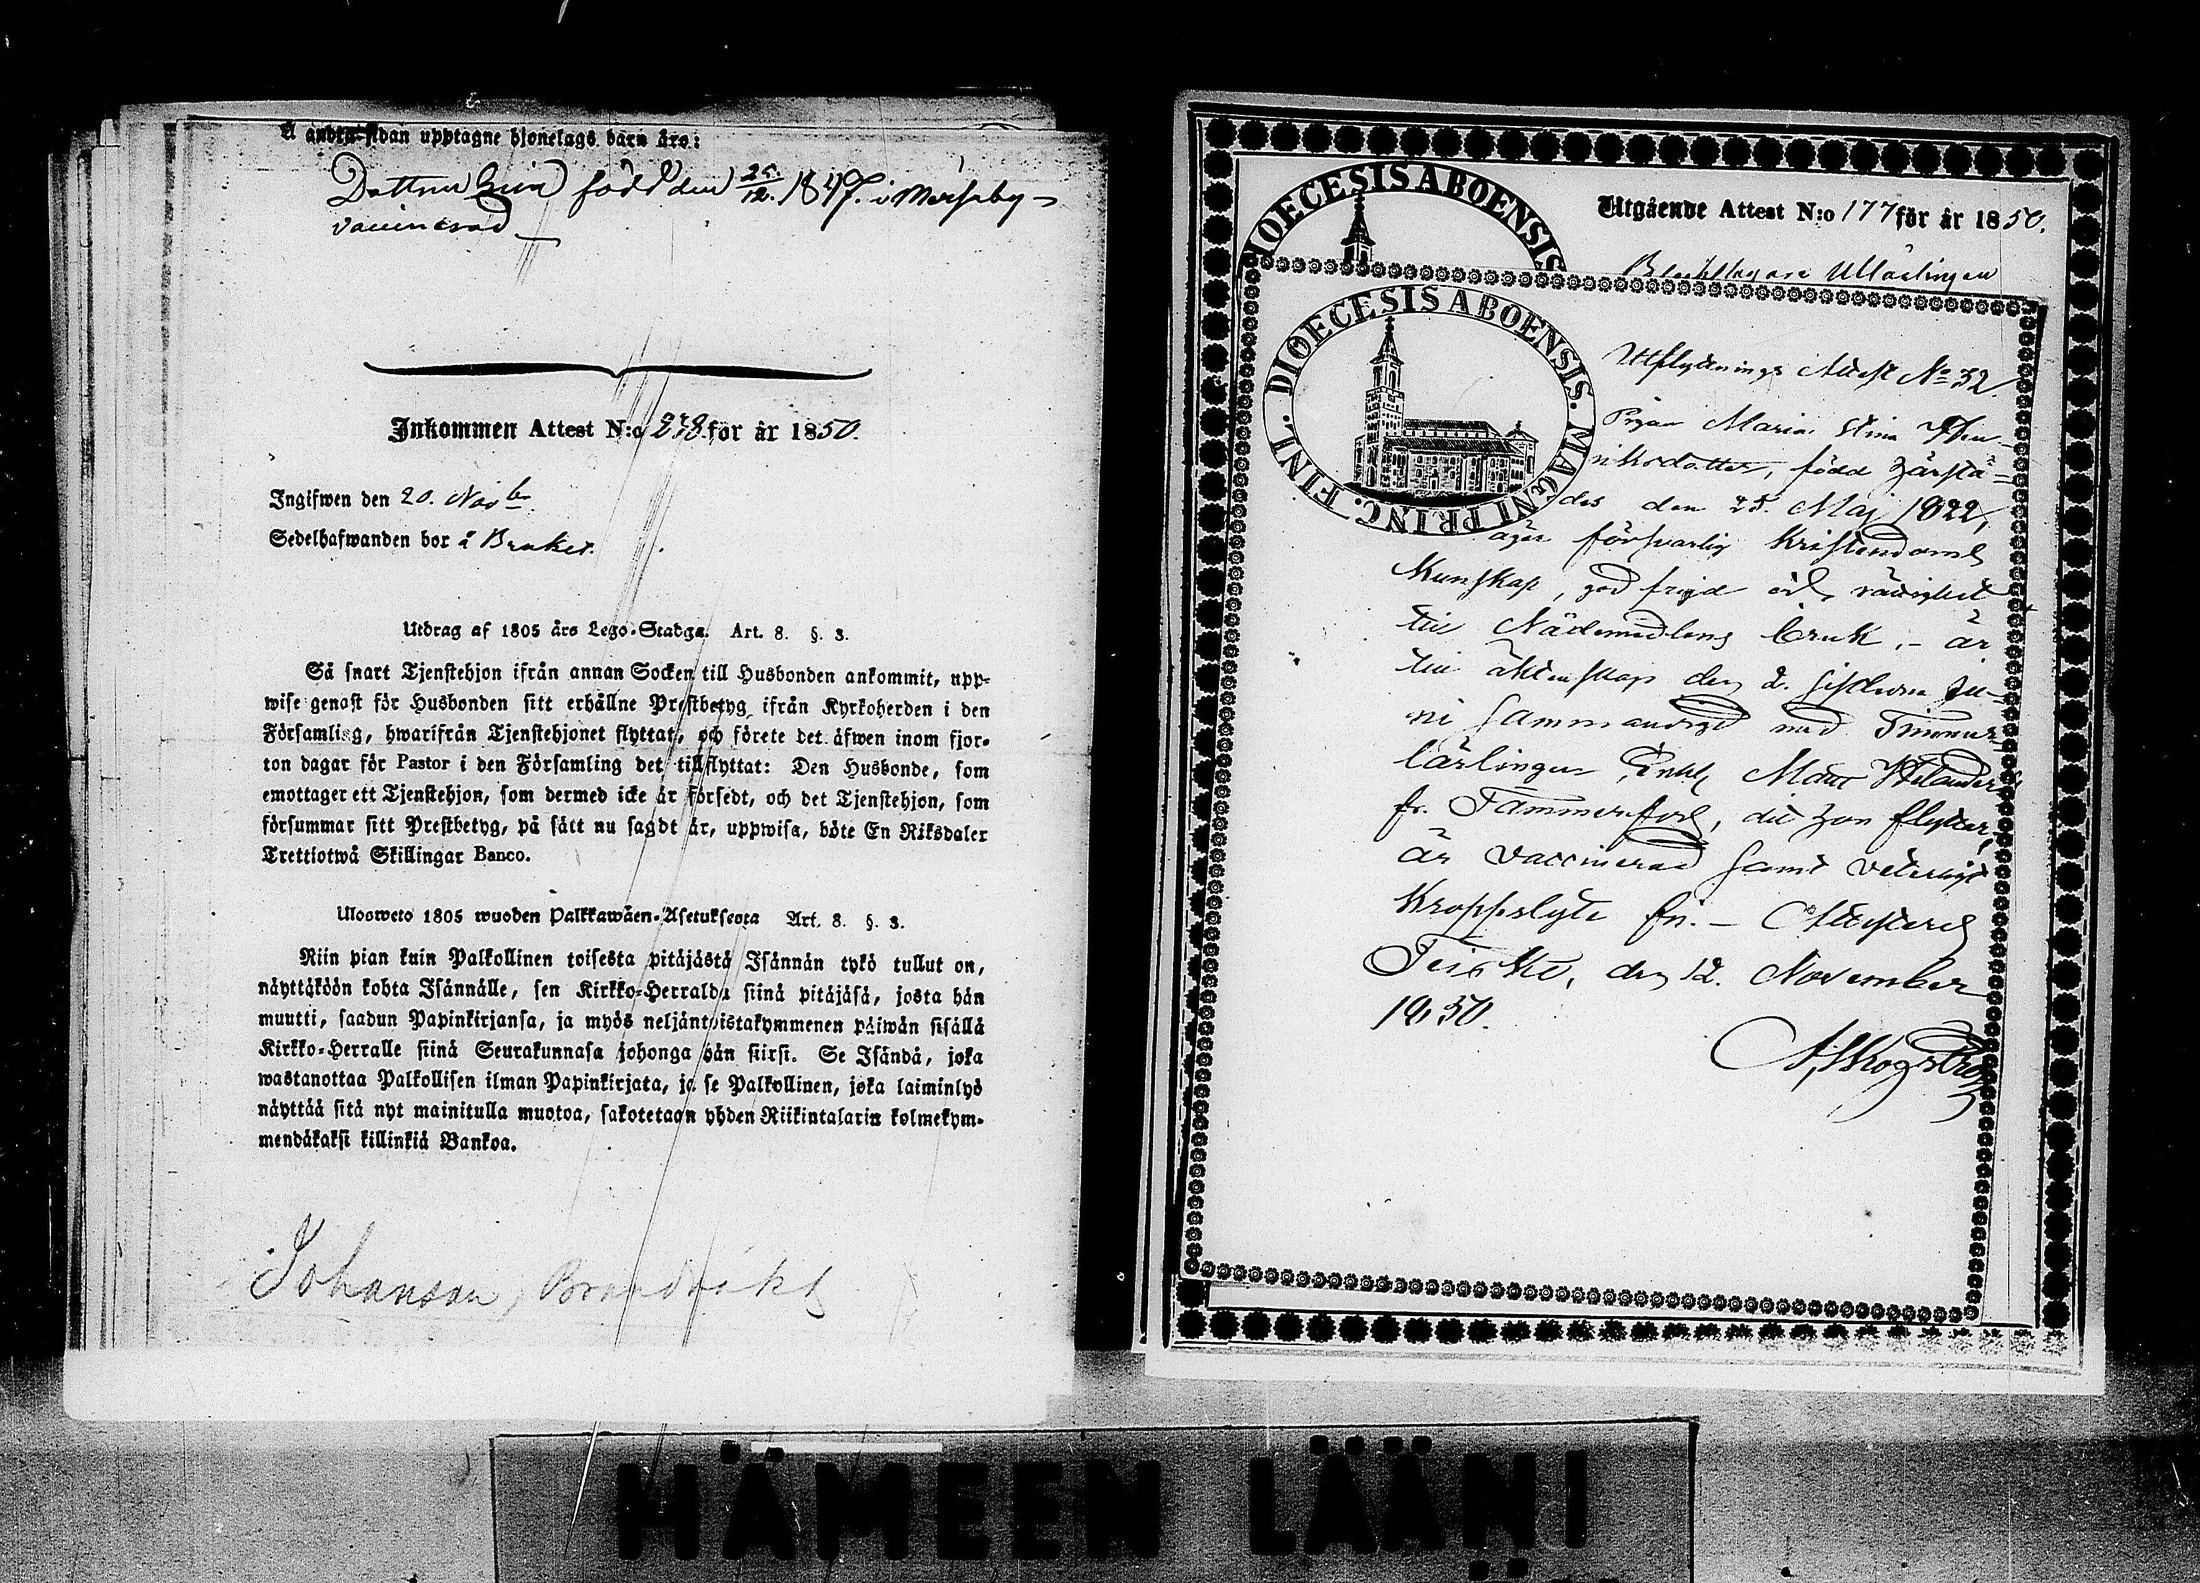 Å andra sidan upptagne hjonelags barn äro:
Dottren född den 25/12. 1847. i
vaccinerad
Inkommen Attest N:o 238 för år 1850.
Ingifwen den 20. Novbr
Sedelhafwanden bor å Bruket.
Utdrag af 1805 års Lego-Stadga. Art. 8. §. 3.
Så snart Tjenstehjon ifrån annan Socken till Husbonden ankommit, upp-
wise genast för Husbonden sitt erhållne Prestbetyg ifrån Kyrkoherden i den
Församling, hwarifrån Tjenstehjonet flyttat, och förete det äfwen inom fjor-
ton dagar för Pastor i den Församling det tillflyttat: Den Husbonde, som
emottager ett Tjenstehjon, som dermed icke är försedt, och det Tjenstehjon, som
försummar sitt Prestbetyg, på sätt nu sagdt är, uppwisa, böte En Riksdaler
Trettiotwå Skillingar Banco.
Ulosweto 1805 wuoden Palkkawäen-Asetuksesta Art. 8. §. 3.
Niin pian kuin Palkollinen toisesta pitäjästä Isännän tykö tullut on,
näyttäköön kohta Isännälle, sen Kirkko-Herralda siinä pitäjäsä, josta hän
muutti, saadun Papinkirjansa, ja myös neljäntoistakymmenen päiwän sisällä
Kirkko-Herralle siinä Seurakunnasa johonga hän siirsi. Se Isändä, joka
wastanottaa Palkollisen ilman Papinkirjata, ja se Palkollinen, joka laiminlyö
näyttää sitä nyt mainitulla muotoa, sakotetaan yhden Riikintalarin kolmekym-
mendäkaksi killinkiä Bankoa.
Johanson,
DIOECESIS ABOENSIS
Utgående Attest N:o 177 för år 1850.
DIOECESIS ABOENSIS. MAGNI PRINC. FINL.
Utflyttnings Attest No 32.
Pigan Maria Stina Hen-
riksdotter, född härstä-
des den 25. Maj 1822,
äger försvarlig Kristendoms
Kunskap, god frejd och rättighet
till Nådemedlens bruk, - är
till äktenskap den 2. sistledne Ju-
ni sammanvigd med Timmer-
lärlingen Enkl. Matts Helander
fr. Tammerfors, dit hon flyttar,
är vaccinerad samt veterligt
Kroppslyte fri. - Attesterar
Teisko, den 12. November
1850.
HÄMEEN LÄÄNI